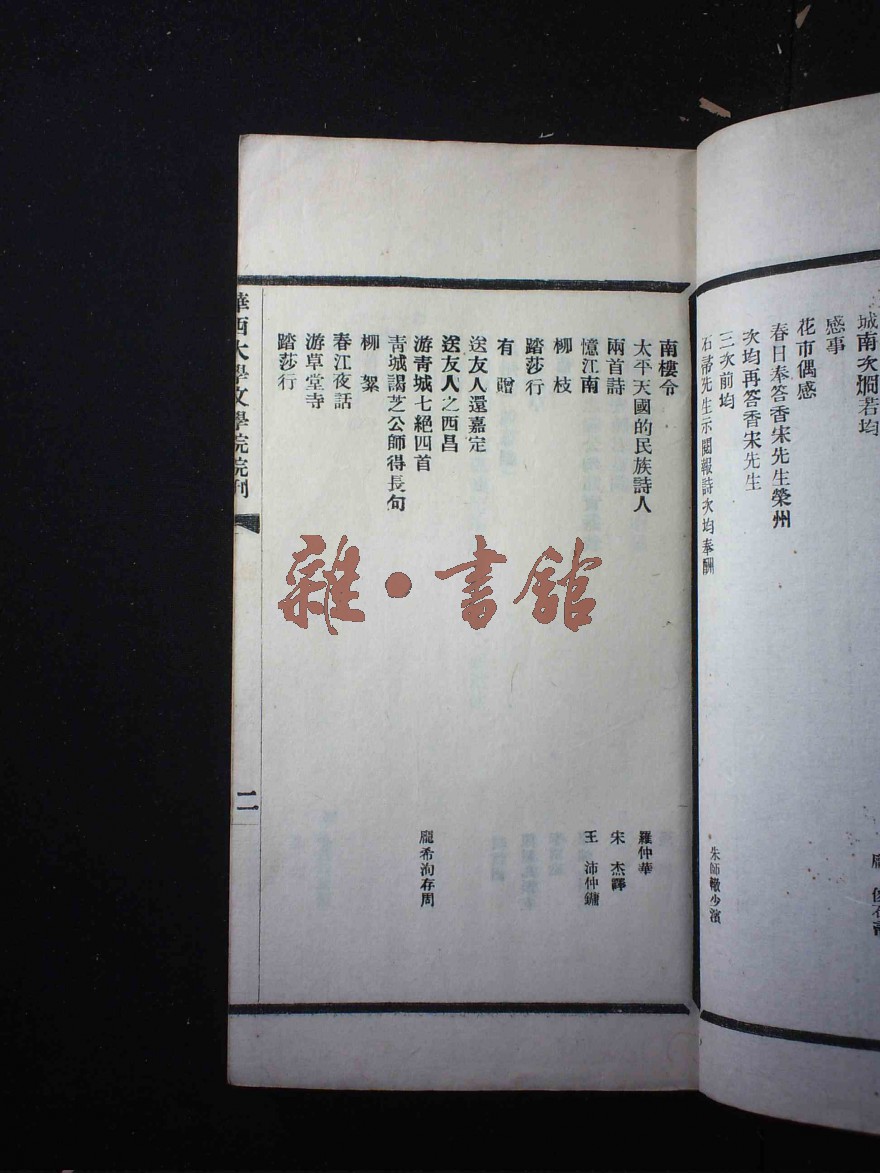 城南次 若均
感事
花市偶感
春日奉答香宋先生榮州
次均再答香宋先生
三次前均
石帚先生示閱報詩次均奉酬 朱師轍少濱
南樓令
太平天國的民族詩人 羅仲華
兩首詩 宋 杰譯
憶江南 王 沛仲鏞
柳 枝
踏莎行
有 贈
送友人還嘉定
送友人之西昌
游青城七絕四首 龐希洵存周
青城謁芝公師得長句
柳 絮
春江夜話
游草堂寺
踏莎行
華西大學文學院院刊
二
雜·書館